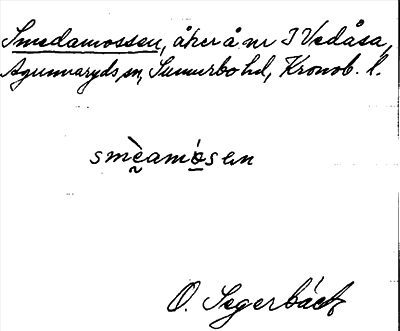 Smedamossen, åker å nr 3 Vedåsa,
Agunnaryds sn, Sunnerbo hd, Kronob. l.
smèamósen
O. Segerbäck